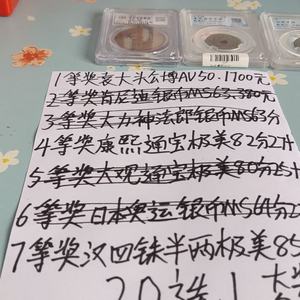 1等奖袁大头公博AU50.1700元
2等奖肯尼迪银币MS63.380元
3等奖大力神法郎银币MS63分
4等奖康熙通宝极美82分2什
5等奖大观通宝极美80分25什
6等奖日本奥运银币MS64分2
7等奖汉四铢半两极美85
20选1